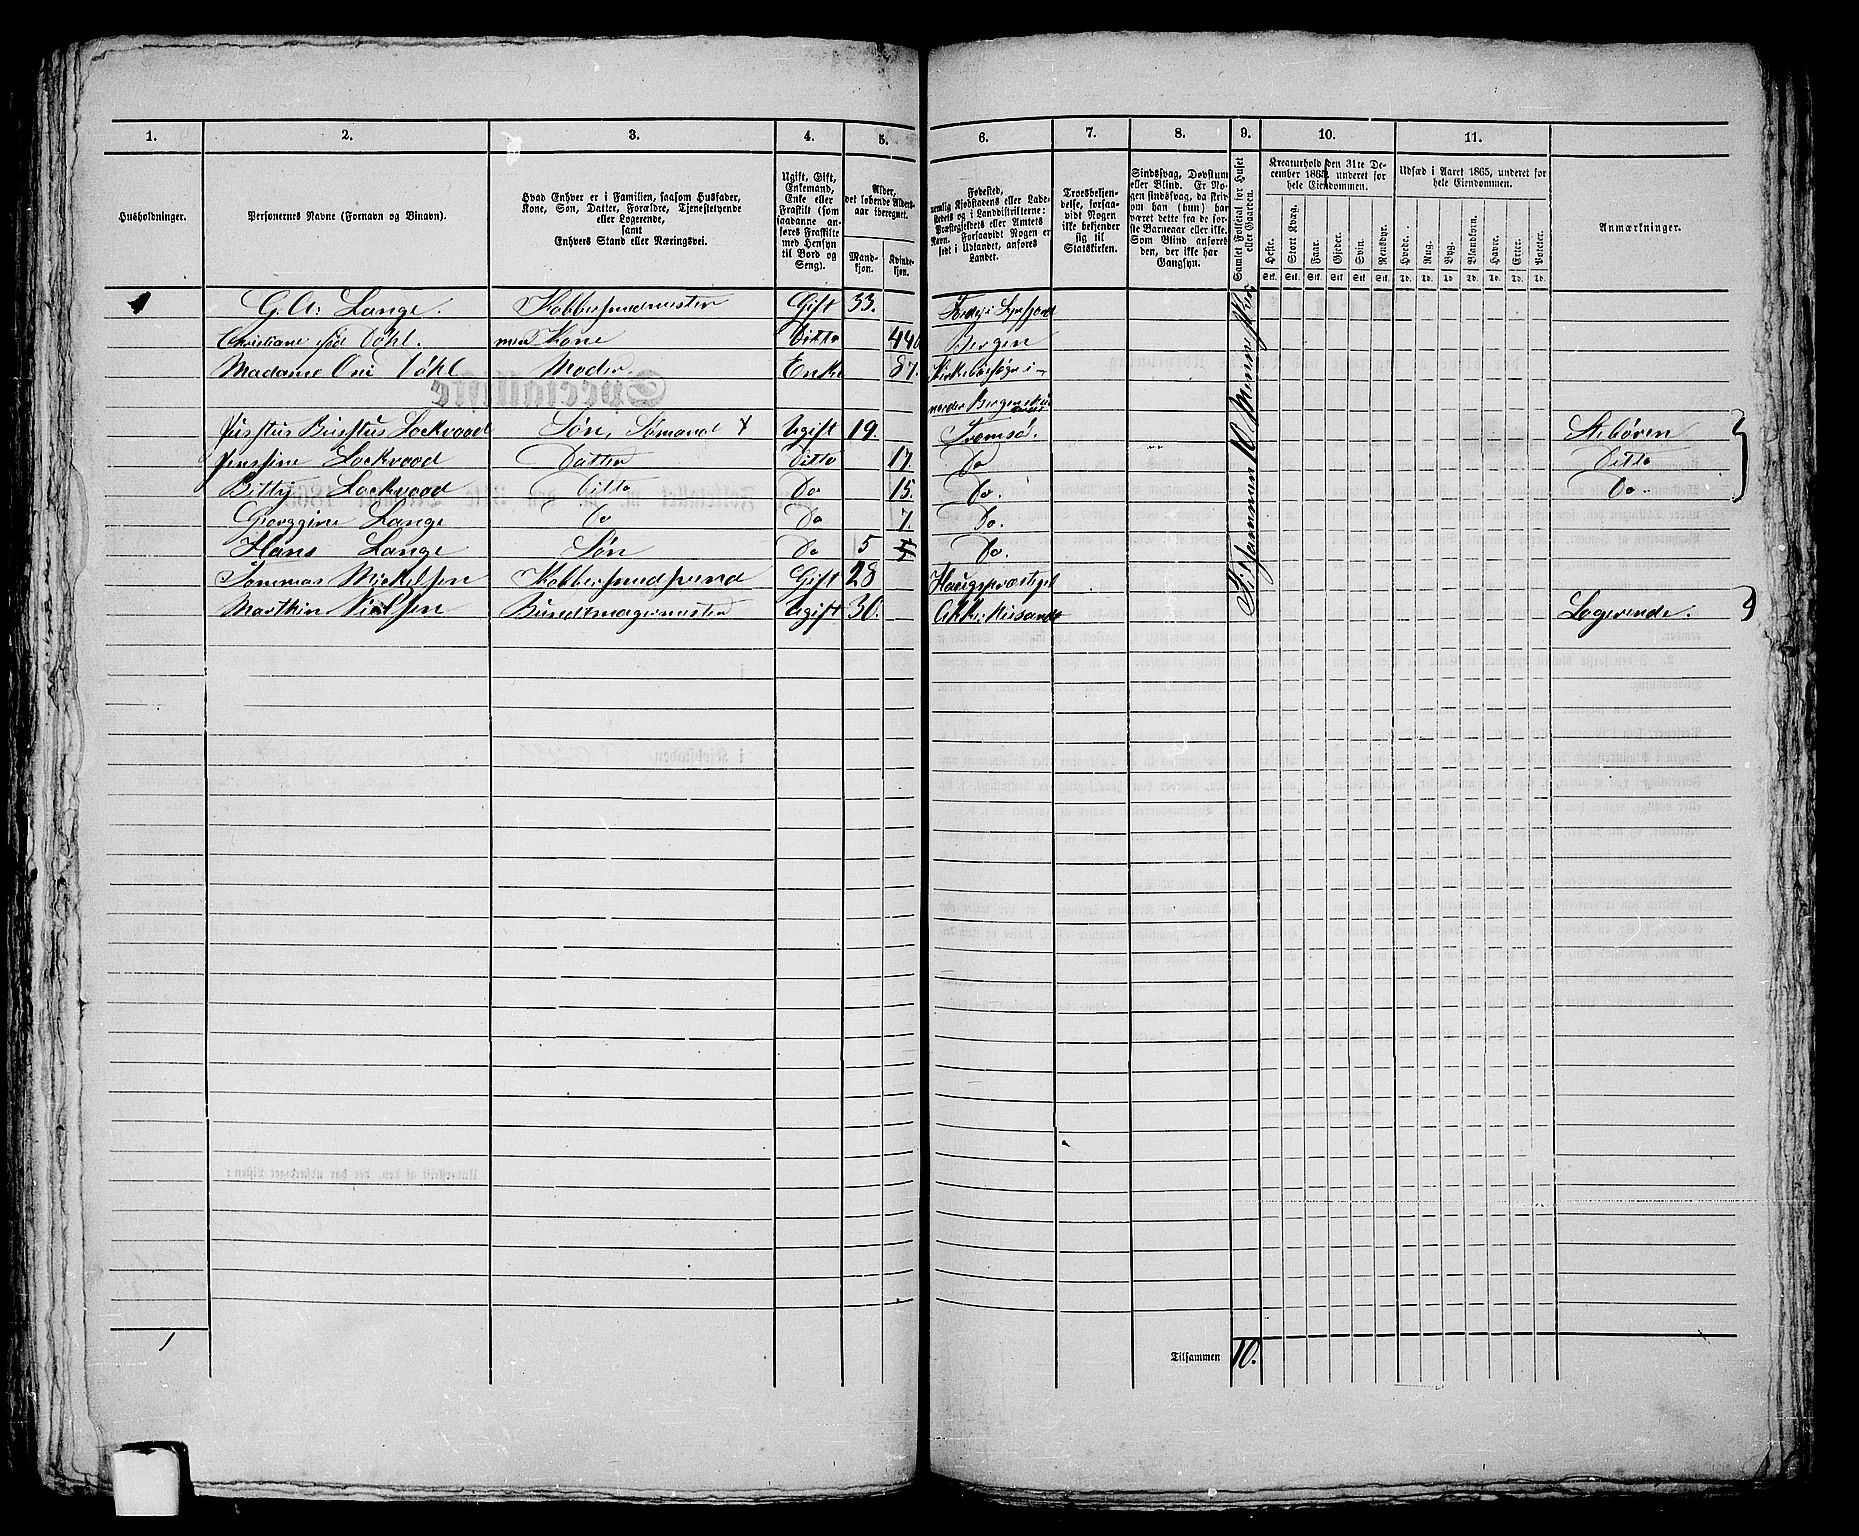 1. 2. 3. 4. 5. 6. 7. 8. 9. 10. 11.
Husholdninger.
Personernes Navne (Fornavn og Binavn).
Hvad Enhver er i Familien, saasom Husfader,
Kone, Søn, Datter, Forældre, Tjenestetyende
eller Logerende,
samt
Enhvers Stand eller Næringsvei.
Ugift, Gift,
Enkemand,
Enke eller
Fraskilt (som
saadanne an-
føres Fraskilte
med Hensyn
til Bord og
Seng).
Alder,
det løbende Alders-
aar iberegnet.
Mand-
kjøn.
Kvinde-
kjøn.
Fødested,
nemlig Kjøbstadens eller Lade-
stedets og i Landdistrikterne:
Præstegjeldets eller Amtets
Navn. Forsaavidt Nogen er
født i Udlandet, anføres
Landet.
Troesbekjen-
delse, forsaa-
vidt Nogen
ikke bekjender
sig til
Statskirken.
Sindssvag, Døvstum
eller Blind. Er No-
gen sindssvag, da skriv
om han (hun) har
været dette fra de før-
ste Barneaar eller ikke.
Som Blind anføres
den, der ikke har
Gangsyn.
Samlet Folketal for Huset
eller Gaarden.
Kreaturhold den 31te De-
cember 1865, underet for
hele Eiendommen.
Heste. Stort Kvæg. Faar. Gjeder. Svin. Rensdyr.
Stk. Stk. Stk. Stk. Stk. Stk.
Udsæd i Aaret 1865, underet for
hele Eiendommen.
Hvede. Rug. Byg. Blandkorn. Havre. Erter. Poteter.
Td. Td. Td. Td. Td. Td. Td.
Anmærkninger.
1 G. A. Lange. Kobbersmedmester Gift 33.
Christiane fød Döhl. Kone Ditto 44 Bergen
Madame Döhl Moder Enke 87. Kirkebøsogn i
nordre Bergenshus
Lockvood Søn, Sømand Ugift 19. Tromsø. Stebören
Lockvood Datter Ditto 17. Do Ditto
Bitty Lockvood Ditto Do 15. Do. Do.
Georggine Lange Do Do 7. Do.
Hans Lange Søn Do 5 Do.
Mickelsen Kobbersmedsvend Gift 28
Marthin Nielsen Bundtmagermester Ugift 30. Logerende.
Tilsammen 10 Mennesker
1
Tilsammen 10.